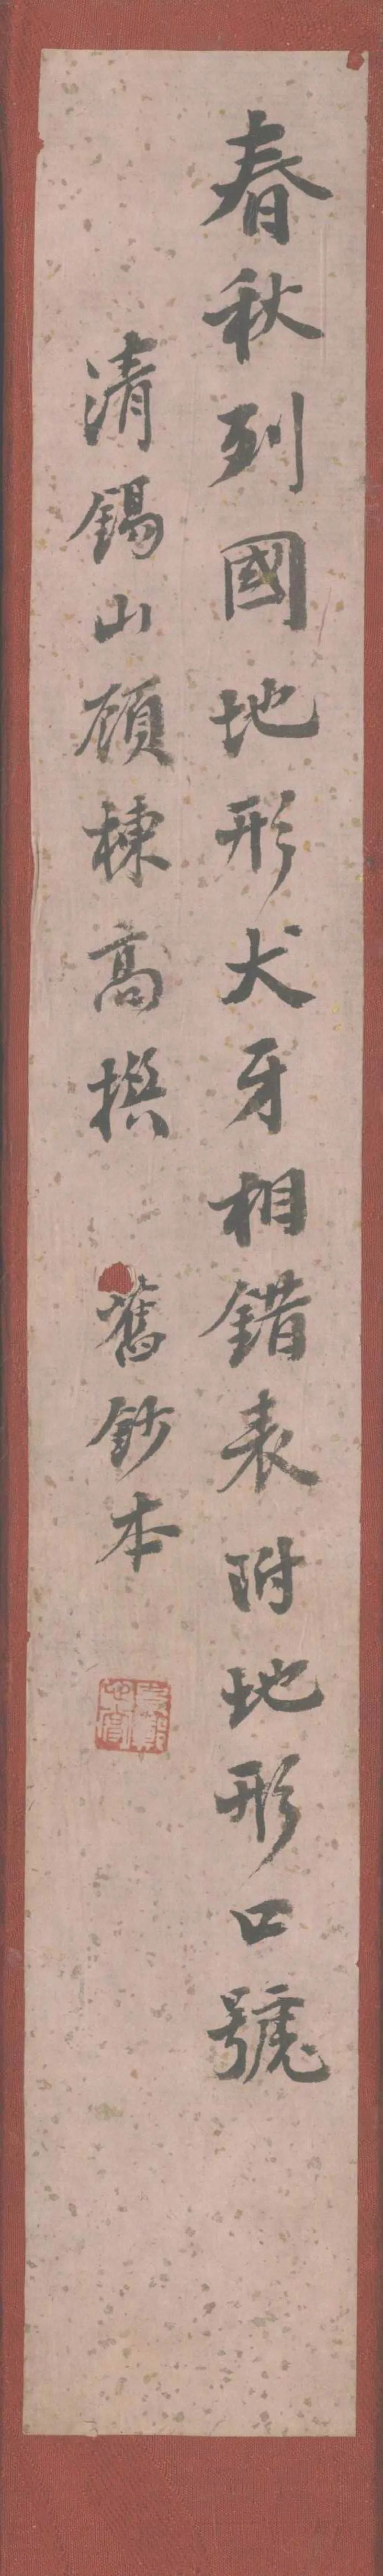 春秋列國地形犬牙相錯表附地形口號
清錫山顧棟高撰 舊鈔本